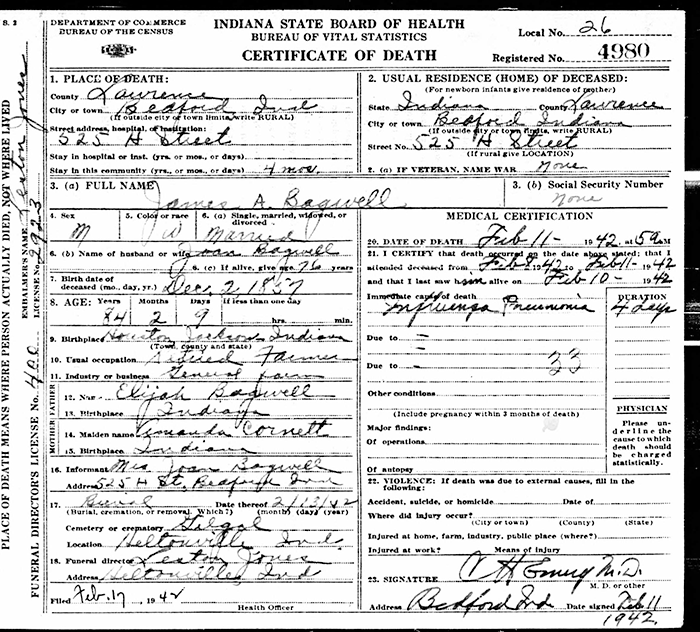 S. 2
DEPARTMENT OF COMMERCE
BUREAU OF THE CENSUS
INDIANA STATE BOARD OF HEALTH
BUREAU OF VITAL STATISTICS
CERTIFICATE OF DEATH
Local No. 26
Registered No. 4980
PLACE OF DEATH MEANS WHERE PERSON ACTUALLY DIED, NOT WHERE LIVED
EMBALMER'S NAME Leston Jones
LICENSE No. 2923
FUNERAL DIRECTOR'S LICENSE No. 400
1. PLACE OF DEATH:
County Lawrence
City or town Bedford Ind
(If outside city or town limits, write RURAL)
Street address, hospital, or institution:
525 H Street
Stay in hospital or inst. (yrs., or mos., or days)
Stay in this community (yrs., or mos., or days) 4 mos
2. USUAL RESIDENCE (HOME) OF DECEASED:
(For newborn infants give residence of mother)
State Indiana County Lawrence
City or town Bedford Indiana
(If outside city or town limits, write RURAL)
Street No. 525 H Street
(If rural give LOCATION)
2. (a) IF VETERAN, NAME WAR None
3. (a) FULL NAME James A. Bagwell
3. (b) Social Security Number
None
4. Sex
M
5. Color or race
W
6. (a) Single, married, widowed, or divorced
Married
6. (b) Name of husband or wife Joan Bagwell
6. (c) If alive, give age 76 years
7. Birth date of deceased (mo., day, yr.) Dec. 2 1857
8. AGE: Years Months Days If less than one day
84 2 9 hrs. min.
9. Birthplace Houston Jackson Indiana
(Town, county and state)
10. Usual occupation Retired Farmer
11. Industry or business General farm
FATHER
12. Name Elijah Bagwell
13. Birthplace Indiana
MOTHER
14. Maiden name Amanda Cornett
15. Birthplace Indiana
16. Informant Mrs Joan Bagwell
Address 525 H St, Bedford Ind
17. Burial Date thereof 2/13/42
(Burial, cremation, or removal. Which?) (month) (day) (year)
Cemetery or crematory Gilgal
Location Heltonville, Ind.
18. Funeral director Leston Jones
Address Heltonville, Ind
Filed Feb. 17 1942
Health Officer
MEDICAL CERTIFICATION
20. DATE OF DEATH Feb 11- 1942 at 5 am
21. I CERTIFY that death occurred on the date above stated; that I
attended deceased from Feb 8, 42 to Feb 11- 1942
and that I last saw him alive on Feb 10- 1942
Immediate cause of death
Influenza Pneumonia
DURATION
4 days
Due to -
Due to -
33
Other conditions
(Include pregnancy within 3 months of death)
Major findings:
Of operations
Of autopsy
PHYSICIAN
Please underline the cause to which death should be charged statistically.
22. VIOLENCE: If death was due to external causes, fill in the following:
Accident, suicide, or homicide Date of
Where did injury occur?
(City or town) (County) (State)
Injured at home, farm, industry, public place (where?)
Injured at work? Means of injury
23. SIGNATURE M.D.
M. D. or other
Address Bedford Ind Date signed Feb 11
1942.